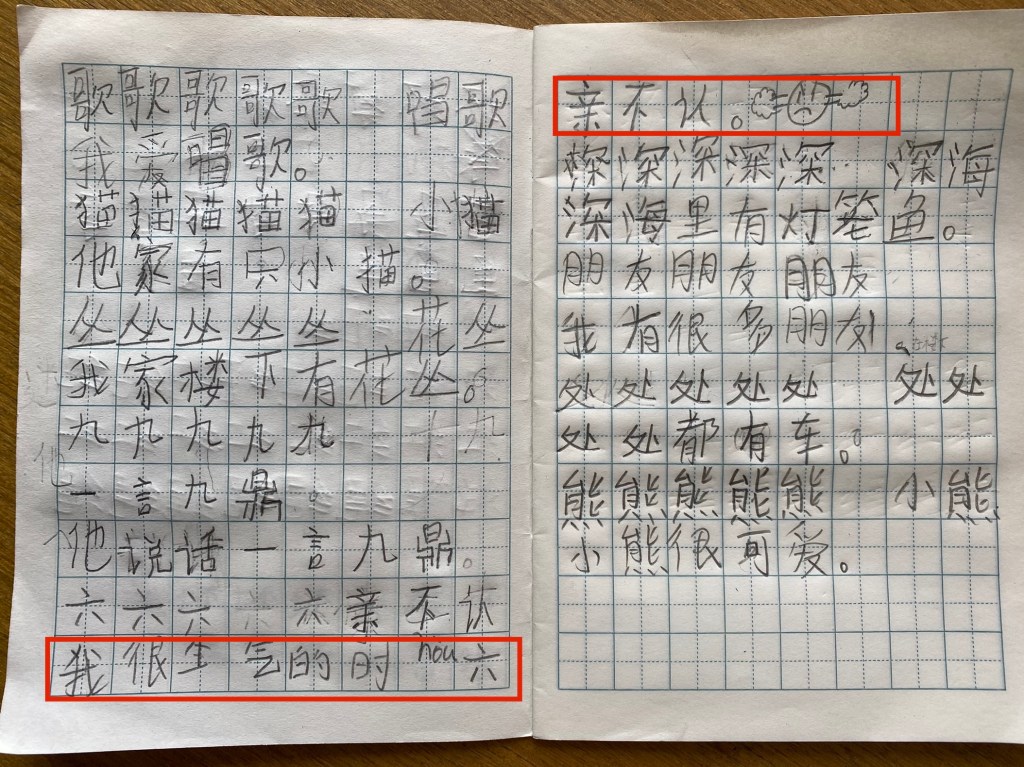 歌歌歌歌歌 唱歌
我爱唱歌。
猫猫猫猫猫 小猫
他家有只小猫。
丛丛丛丛丛 花丛
我家楼下有花丛。
九九九九九 十九
一言九鼎。
他说话一言九鼎。
六六六六六亲不认
我很生气的时hou六
亲不认。
深深深深深 深海
深海里有灯笼鱼。
朋友朋友朋友
我有很多朋友。
处处处处处 处处
处处都有车。
熊熊熊熊熊 小熊
小熊很可爱。